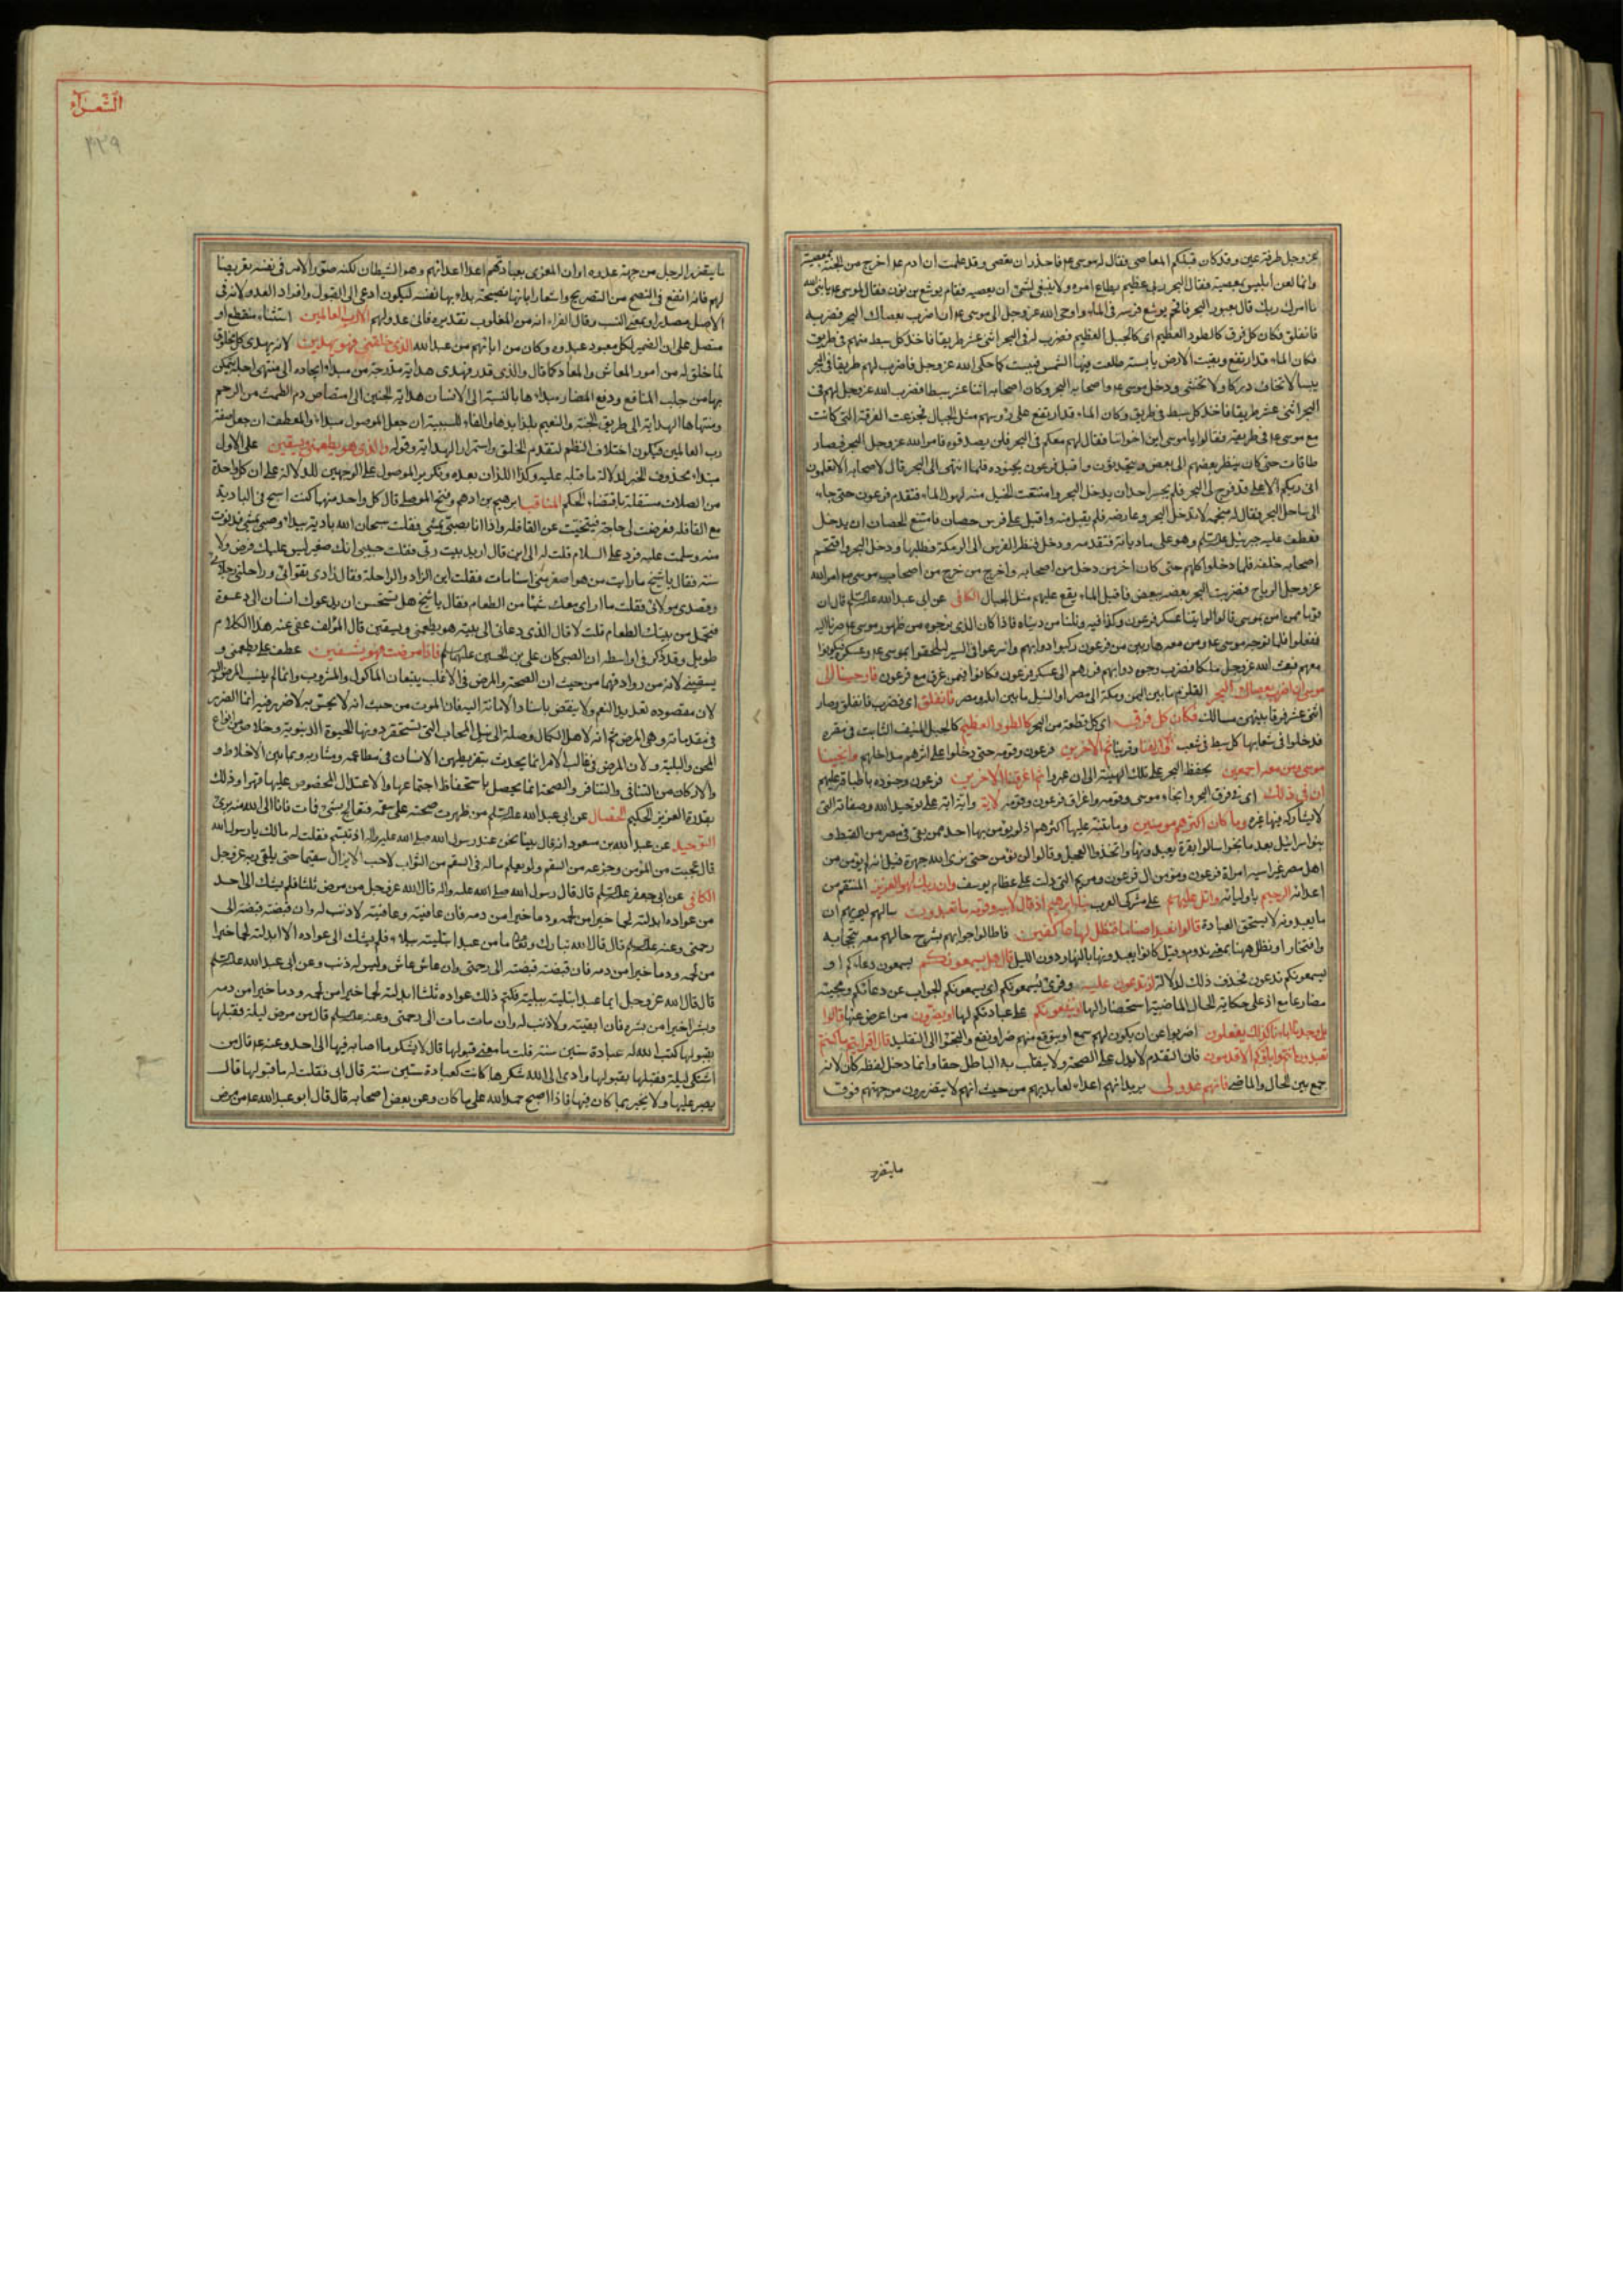 عز وجل طرفة عين وقد كان قبلكم المعاصى فقال له موسى ع‍ فاحذر ان تعصى وقد علمت ان ادم ع‍ اخرج من الجنة بمعصية
وانما لعن ابليس بمعصية فقال البحر ربى عظيم مطاع امره ولا ينبغى لشئ ان يعصيه فقام يوشع بن نون فقال لموسى ع‍ يا نبى الله
ما امرك ربك قال بعبور البحر فاقحم يوشع فرسه فى الماء واوحى الله عز وجل الى موسى ع‍ ان اضرب بعصاك البحر فضربه
فانفلق فكان كل فرق كالطود العظيم اى كالجبل العظيم فضرب له فى البحر اثنى عشر طريقا فاخذ كل سبط منهم فى طريق
فكان الماء قد ارتفع وبقيت الارض يابسة طلعت فيها الشمس فيبست كما حكى الله عز وجل فاضرب لهم طريقا فى البحر
يبسا لا تخاف دركا ولا تخشى ودخل موسى ع‍ واصحابه البحر وكان اصحابه اثنا عشر سبطا فضرب الله عز وجل لهم فى
البحر اثنى عشر طريقا فاخذ كل سبط فى طريق وكان الماء قد ارتفع على رؤسهم مثل الجبال فجزعت الفرقة التى كانت
مع موسى ع‍ فى طريقه فقالوا يا موسى اين اخواننا فقال لهم معكم فى البحر فلن يصدقوه فامر الله عز وجل البحر فصار
طاقات حتى كان ينظر بعضهم الى بعض ويتحدثون واقبل فرعون بجنوده فلما انتهى الى البحر قال لاصحابه الا تعلمون
انى ربكم الاعلى قد فرج لى البحر فلم يجسر احد ان يدخل البحر وامتنعت الخيل منه لهول الماء فتقدم فرعون حتى جاء
الى ساحل البحر فقال له منجمه لا تدخل البحر وعارضه فلم يقبل منه واقبل على فرس حصان فامتنع الحصان ان يدخل
فعطف عليه جبرئيل عليه السلم وهو على ماديانة فتقدمه ودخل فنظر الفرس الى الرمكة فطلبها ودخل البحر واقتحم
اصحابه خلفه فلما دخلوا كلهم حتى كان اخر من دخل من اصحابه واخر من خرج من اصحاب موسى ع‍ امر الله
عز وجل الرياح فضربت البحر بعضه ببعض فاقبل الماء يقع عليهم مثل الجبال الكافى عن ابى عبد الله عليه السلم قال ان
قوما ممن امن بموسى قالوا لو اتينا عسكر فرعون وكنا فيه ونلنا من دنياه فاذا كان الذى نرجوه من ظهور موسى ع‍ صرنا اليه
ففعلوا فلما توجه موسى ع‍ ومن معه هاربين من فرعون ركبوا دوابهم واسرعوا فى السير ليلحقوا بموسى ع‍ وعسكره فيكونوا
معهم فبعث الله عز وجل ملكا فضرب وجوه دوابهم فردهم الى عسكر فرعون فكانوا فيمن غرق مع فرعون فاوحينا الى
موسى ان اضرب بعصاك البحر القلزم ما بين اليمن ومكة الى مصر او النيل ما بين ايله ومصر فانفلق اى فضرب فانفلق وصار
اثنى عشر فرقا بينهن مسالك فكان كل فرق اى كل قطعة من البحر كالطود العظيم كالجبل المنيف الثابت فى مقره
فدخلوا فى شعابها كل سبط فى شعب وازلفنا وقربنا ثم الاخرين فرعون وقومه حتى دخلوا على اثرهم مداخلهم وانجينا
موسى ومن معه اجمعين بحفظ البحر على تلك الهيئة الى ان عبروا ثم اغرقنا الاخرين فرعون وجنوده باطباقه عليهم
ان فى ذلك اى فى فرق البحر وانجاء موسى وقومه واغراق فرعون وقومه لاية واية اية على توحيد الله وصفاته التى
لا يشاركه فيها غيره وما كان اكثرهم مومنين وما تنبه عليها اكثرهم اذ لم يؤمن بها احد ممن بقى فى مصر من القبط و
بنو اسرائيل بعد ما نجوا سالوا بقرة يعبدونها واتخذوا العجل وقالوا لن نؤمن حتى نرى الله جهرة قيل انه لم يؤمن من
اهل مصر غير اسيه امراة فرعون ومؤمن ال فرعون ومريم التى دلت على عظام يوسف وان ربك لهو العزيز المنتقم من
اعدائه الرحيم باوليائه واتل عليهم على مشركى العرب نبأ ابرهيم اذ قال لابيه وقومه ما تعبدون سالهم ليريهم ان
ما يعبدونه لا يستحق العبادة قالوا نعبد اصناما فنظل لها عاكفين فاطالوا جوابهم بشرح حالهم معه تبجحا به
وافتخارا ونظل ههنا بمعنى ندوم وقيل كانوا يعبدونها بالنهار دون الليل قال هل يسمعونكم يسمعون دعائكم او
يسمعونكم تدعون فحذف ذلك لدلالة اذ تدعون عليه وقرئ يُسمعونكم اى يسمعونكم الجواب عن دعائكم ومجيئه
مضارعا مع اذ على حكاية الحال الماضية استحضارا لها او ينفعونكم على عبادتكم لها او يضرون من اعرض عنها قالوا
بل وجدنا اباءنا كذلك يفعلون اضربوا عن ان يكون لهم سمع او يتوقع منهم ضر او نفع والتجؤا الى التقليد قال افرايتم ما كنتم
تعبدون انتم واباؤكم الاقدمون فان التقدم لا يدل على الصحة ولا ينقلب به الباطل حقا وانما دخل لفظه كان لانه
جمع بين الحال والماضى فانهم عدو لى يريد انهم اعداء لعابديهم من حيث انهم لا يتضررون من جهتهم فوق
ما يتضرر
الشعراء
٣٢٩
ما يتضرر الرجل من جهة عدوه او ان المغرى بعبادتهم اعدا اعدائهم وهو الشيطان لكنه صور الامر فى نفسه تعريضا
لهم فانه انفع فى النصح من التصريح واشعارا بانها نصيحة بداء بها نفسه ليكون ادعى الى القبول وافراد العدو لانه فى
الاصل مصدر او بمعنى النسب وقال الفراء انه من المقلوب تقديره فانى عدو لهم الا رب العالمين استثناء منقطع او
متصل على ان الضمير لكل معبود عبدوه وكان من ابائهم من عبد الله الذى خلقنى فهو يهدين لانه يهدى كل مخلوق
لما خلق له من امور المعاش والمعاد كما قال والذى قدر فهدى هداية مدرجة من مبداء ايجاده الى منتهى اجله يتمكن
بها من جلب المنافع ودفع المضار مبداءها بالنسبة الى الانسان هداية الجنين الى امتصاص دم الطمث من الرحم
ومنتهاها الهداية الى طريق الجنة والنعيم بلذايذها والفاء للسببية ان جعل الموصول مبتداء وللعطف ان جعل صفة
رب العالمين فيكون اختلاف النظم لتقدم الخلق واستمرار الهداية وقوله والذى هو يطعمنى ويسقين على الاول
مبتداء محذوف الخبر لدلالة ما قبله عليه وكذا اللذان بعده وتكرير الموصول على الوجهين للدلالة على ان كل واحدة
من الصلات مستقلة باقتضاء الحكم المناقب ابرهيم بن ادهم وفتح الموصلى قال كل واحد منهما كنت اسيح فى البادية
مع القافله فعرضت لى حاجة فتنحيت عن القافله واذا انا بصبى يمشى فقلت سبحان الله بادية بيداء وصبى يمشى فدنوت
منه وسلمت عليه فرد على السلام قلت له الى اين قال اريد بيت ربى فقلت حبيبى انك صغير ليس عليك فرض ولا
سنة فقال يا شيخ ما رايت من هو اصغر منى سنا مات فقلت اين الزاد والراحلة فقال زادى تقواى وراحلتى رجلاى
وقصدى مولاى فقلت ما ارى معك شيئا من الطعام فقال يا شيخ هل يستحسن ان يدعوك انسان الى دعوة
فتحمل من بيتك الطعام قلت لا قال الذى دعانى الى بيته هو يطعمنى ويسقين قال المؤلف عفى عنه هذا الكلام
طويل وقد ذكر فى اواسطه ان الصبى كان على بن الحسين عليهما السلم فاذا مرضت فهو يشفين عطف على يطعمنى و
يسقينى لانه من روادفهما من حيث ان الصحة والمرض فى الاغلب يتبعان الماكول والمشروب وانما لم ينسب المرض اليه
لان مقصوده تعديد النعم ولا ينتقض باسناد الاماتة اليه فان الموت من حيث انه لا يحس به لا ضرر فيه انما الضرر
فى مقدماته وهى المرض ثم انه لاهل الكمال وصلة الى نيل المحاب التى تستحقر دونها الحيوة الدنيوية وخلاص من انواع
المحن والبلية ولان المرض فى غالب الامر انما يحدث بتفريط من الانسان فى مطاعمه ومشاربه وبما بين الاخلاط و
والاركان من التنافى والتنافر والصحة انما يحصل باستحفاظ اجتماعها والاعتدال المخصوص عليها قهرا وذلك
بقدرة العزيز الحكيم الخصال عن ابى عبد الله عليه السلم من ظهرت صحته على سقمه فتعالج بشئ فمات فانا الى الله منه برئ
التوحيد عن عبد الله بن مسعود انه قال بينا نحن عند رسول الله صلى الله عليه واله اذ تبسم فقلت له مالك يا رسول الله
قال عجبت من المؤمن وجزعه من السقم ولو يعلم ماله فى السقم من الثواب لاحب الا يزال سقيما حتى يلقى ربه عز وجل
الكافى عن ابى جعفر عليه السلم قال قال رسول الله صلى الله عليه واله قال الله عز وجل من مرض ثلثا فلم يشك الى احد
من عواده ابدلته لحما خيرا من لحمه ودما خيرا من دمه فان عافيته عافيته ولا ذنب له وان قبضته قبضته الى
رحمتى وعنه عليه السلم قال قال الله تبارك وتعالى ما من عبد ابتليته ببلاء فلم يشك الى عواده الا ابدلته لحما خيرا
من لحمه ودما خيرا من دمه فان قبضته قبضته الى رحمتى وان عاش عاش وليس له ذنب وعن ابى عبد الله عليه السلم
قال قال الله عز وجل ايما عبد ابتليته ببلية فكتم ذلك عواده ثلثا ابدلته لحما خيرا من لحمه ودما خيرا من دمه
وبشرا خيرا من بشره فان ابقيته ولا ذنب له وان مات مات الى رحمتى وعنه عليه السلم قال من مرض ليلة فقبلها
بقبولها كتب الله له عبادة ستين سنة قلت ما معنى قبولها قال لا يشكو ما اصابه فيها الى احد وعنه ع‍ قال من
اشتكى ليلة فقبلها بقبولها وادى الى الله شكرها كانت كعبادة ستين سنة قال ابى فقلت له ما قبولها قال
يصبر عليها ولا يخبر بما كان فيها فاذا اصبح حمد الله على ما كان وعن بعض اصحابه قال قال ابو عبد الله ع‍ من مرض